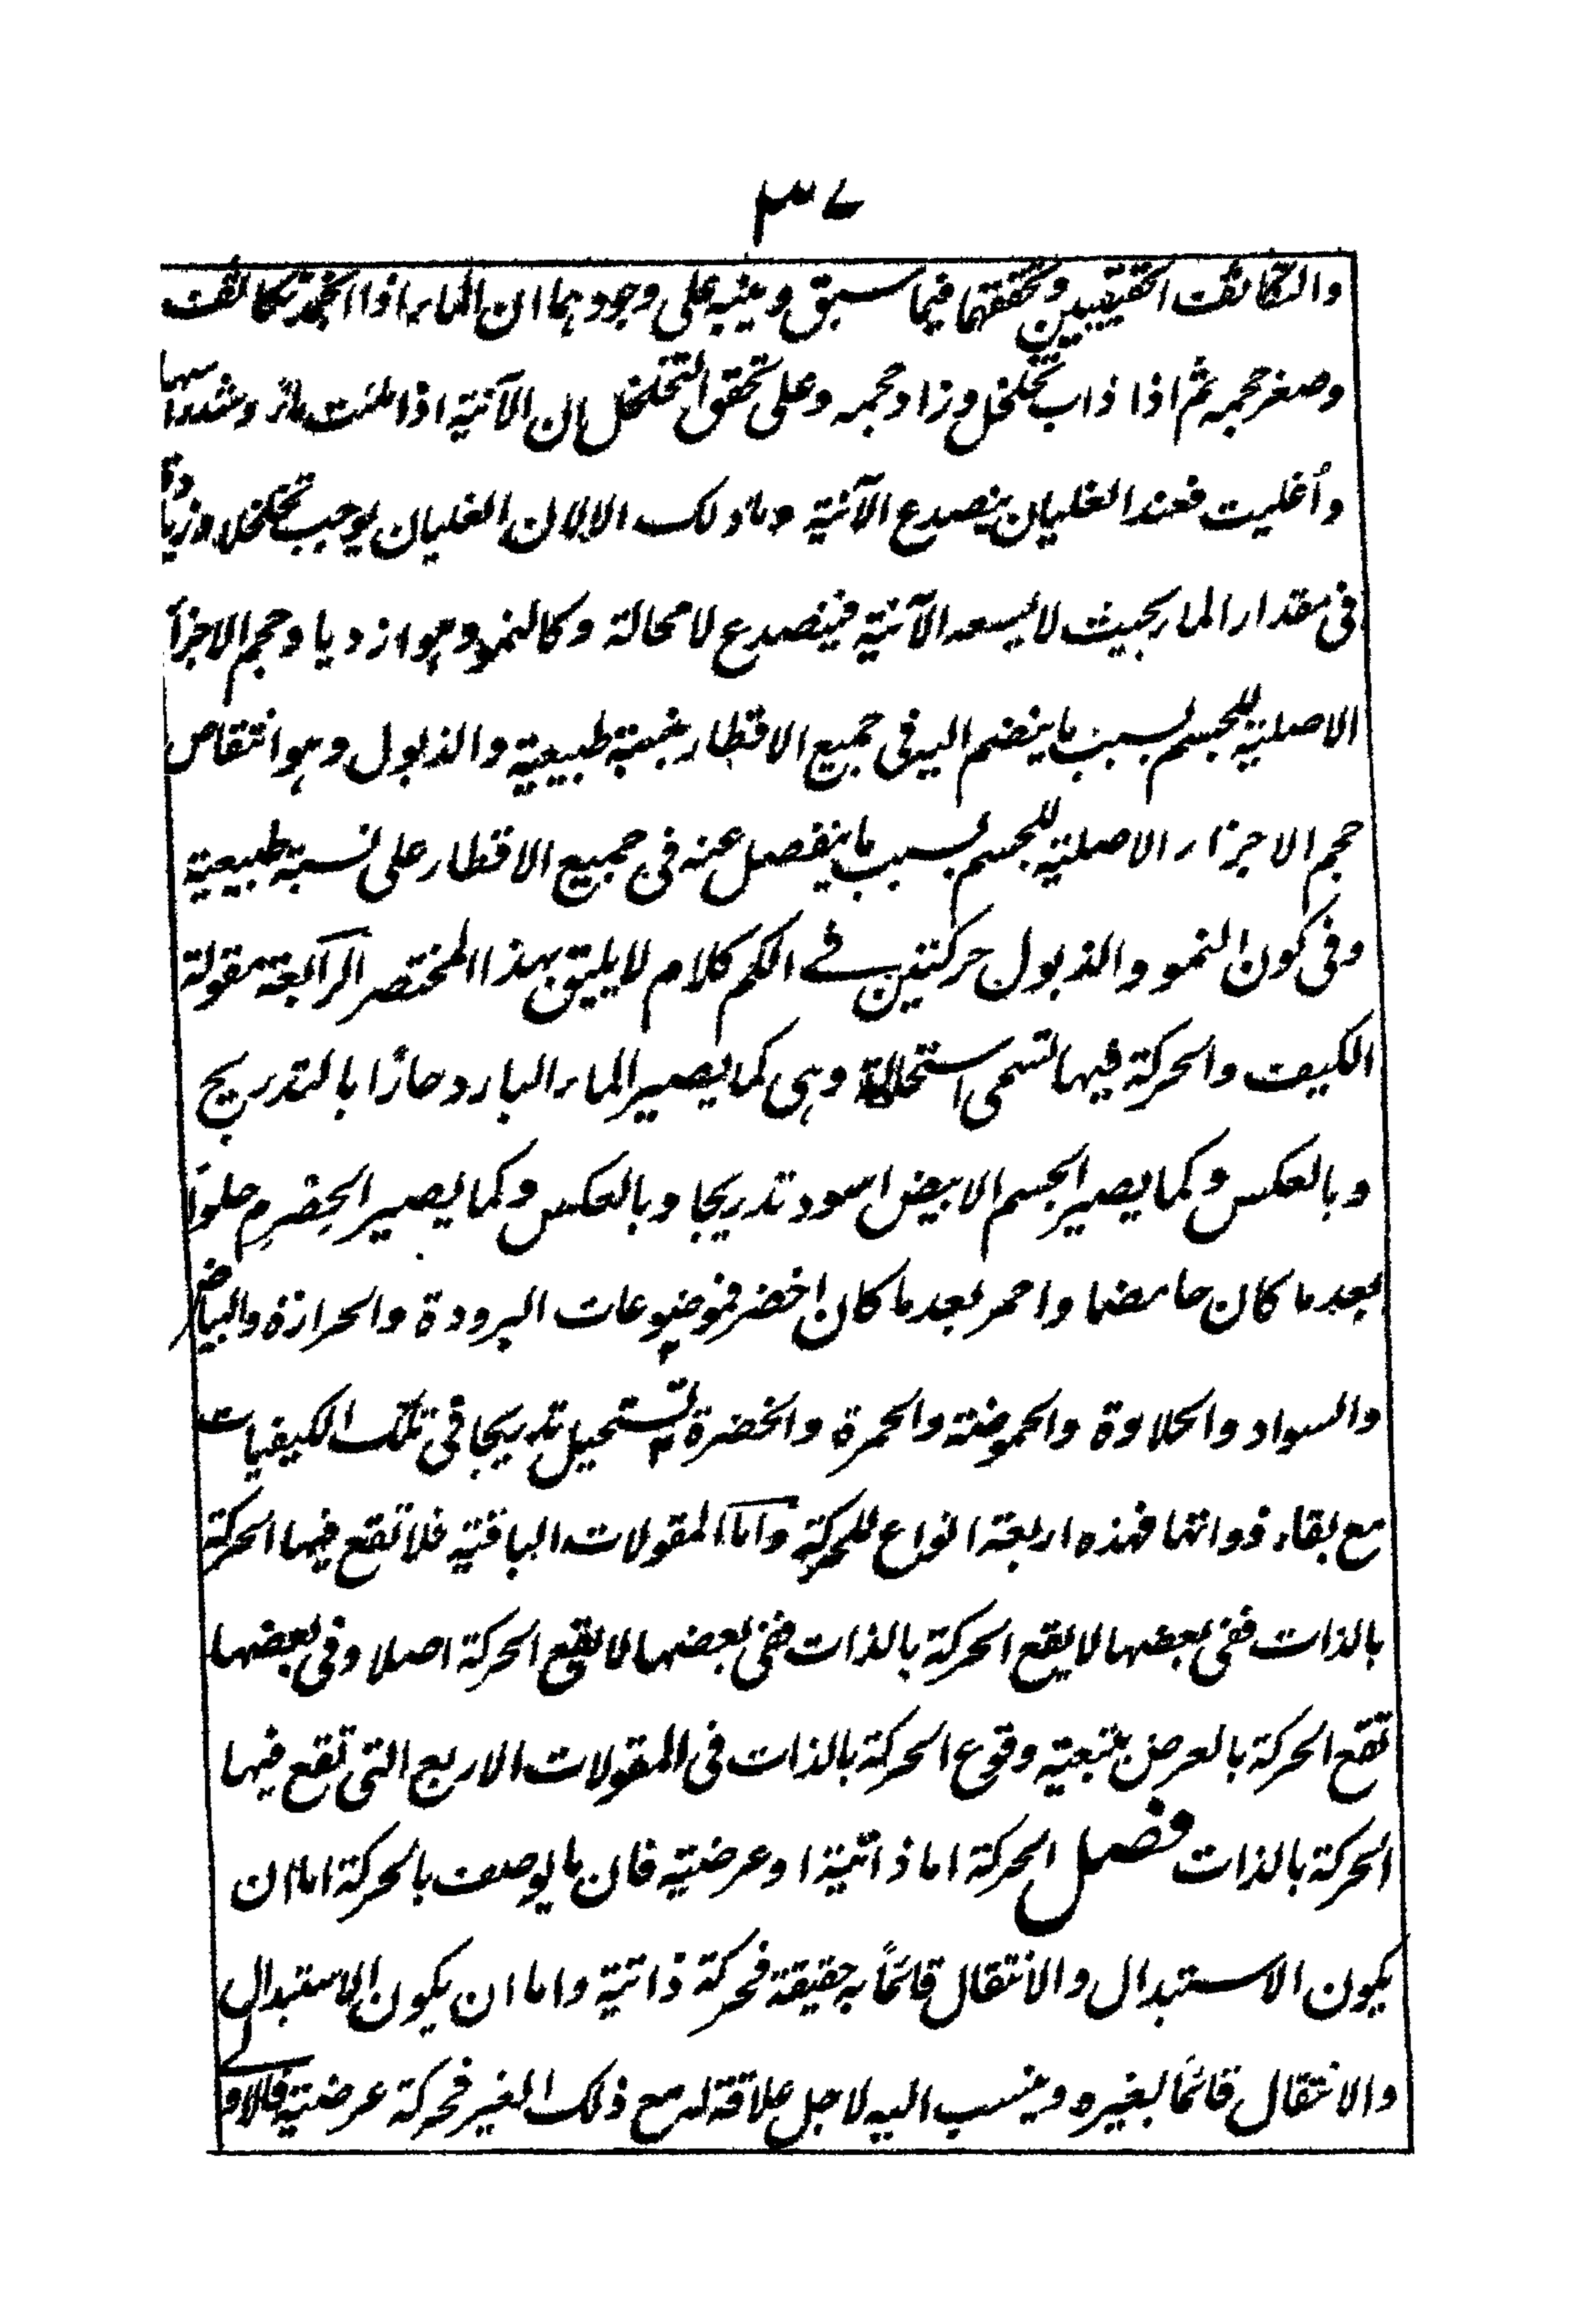 ٣٧
والتكاثف الحقيقيين وتحققهما فيما سبق وينبه على وجودهما ان الماء اذا انجمد تكاثف
وصغر حجمه ثم اذا ذاب تخلخل وزاد حجمه وعلى تحقق التخلخل ان الآنية اذا ملئت ماءً وشد راسها
وأغليت فعند الغليان ينصدع الآنية وما ذلك الا لان الغليان يوجب تخلخلا وزيادة
فى مقدار الماء بحيث لا يسعه الآنية فينصدع لا محالة وكالنمو وهو ازدياد حجم الاجزاء
الاصلية للجسم بسبب ما ينضم اليه فى جميع الاقطار بنسبة طبيعية والذبول وهو انتقاص
حجم الاجزاء الاصلية للجسم بسبب ما ينفصل عنه فى جميع الاقطار على نسبة طبيعية
وفى كون النمو والذبول حركتين فے الكم كلام لا يليق بهذا المختصر الرابعة مقولة
الكيف والحركة فيها تسمى استحالة وهى كما يصير الماء البارد حارًا بالتدريج
وبالعكس وكما يصير الجسم الابيض اسود تدريجا وبالعكس وكما يصير الحِصْرِم حلواً
بعد ما كان حامضا واحمر بعد ما كان اخضر فموضوعات البرودة والحرارة والبياض
والسواد والحلاوة والحموضة والحمرة والخضرة تستحيل تدريجا فى تلك الكيفيات
مع بقاء ذواتها فهذه اربعة انواع للحركة واما المقولات الباقية فلا تقع فيها الحركة
بالذات ففى بعضها لا يقع الحركة بالذات ففى بعضها لا يقع الحركة اصلا وفى بعضها
تقع الحركة بالعرض بتبعية وقوع الحركة بالذات فى المقولات الاربع التى تقع فيها
الحركة بالذات فصل الحركة اما ذاتية او عرضية فان ما يوصف بالحركة اما ان
يكون الاستبدال والانتقال قائماً به حقيقة فحركة ذاتية واما ان يكون الاستبدال
والانتقال قائمًا بغيره وينسب اليه لاجل علاقة له مع ذلك الغير فحركة عرضية فالاول